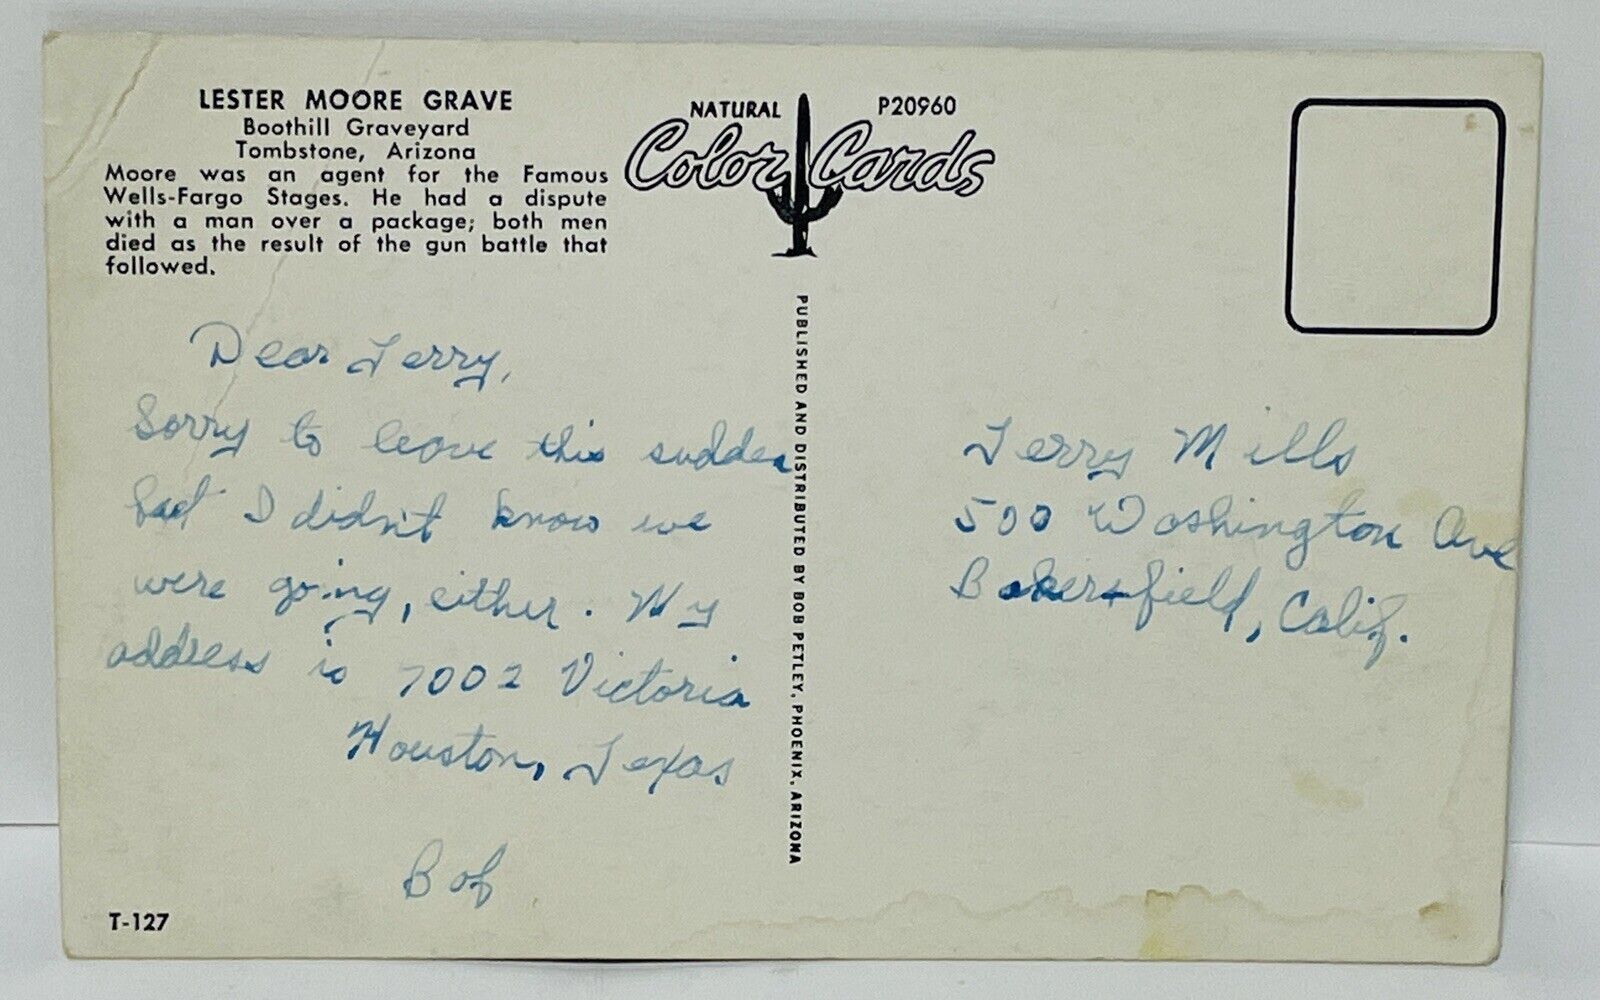 LESTER MOORE GRAVE
Boothill Graveyard
Tombstone, Arizona
Moore was an agent for the Famous
Wells-Fargo Stages. He had a dispute
with a man over a package; both men
died as the result of the gun battle that
followed.
NATURAL
P20960
Color Cards
PUBLISHED AND DISTRIBUTED BY BOB PETLEY, PHOENIX, ARIZONA
Dear Terry,
Sorry to leave this sudden
but I didn't know we
were going, either. My
address is 7002 Victoria
Houston, Texas
Bob
T-127
Terry Mills
500 Washington Ave
Bakersfield, Calif.